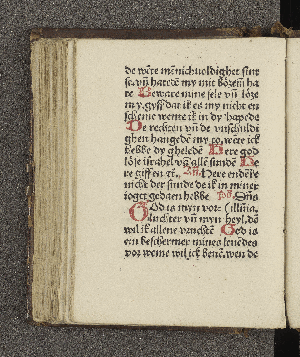 de wēte mēnichuoldighet sint
se. vñ hatedē my mit bözem ha
te Beware mine sele vñ löze
my. gyff dat ik es my nicht en
scheme wente ik in dy hapede
De rechten vñ de vnschuldi
ghen hangedē my to. wēte ick
hebbe dy ghebedē Here god
löze israhel vā alle sundē He
re giff en Añ. Here endēke
nicht der sunde de ik in miner
ioget gedaen hebbe Ps. Dñs
God is myn vor- illuīa.
lüchter vñ myn heyl. dē
wil ik allene vruchtē God is
ein beschermer mines leuēdes
vor weme wil ick beuē. wen de